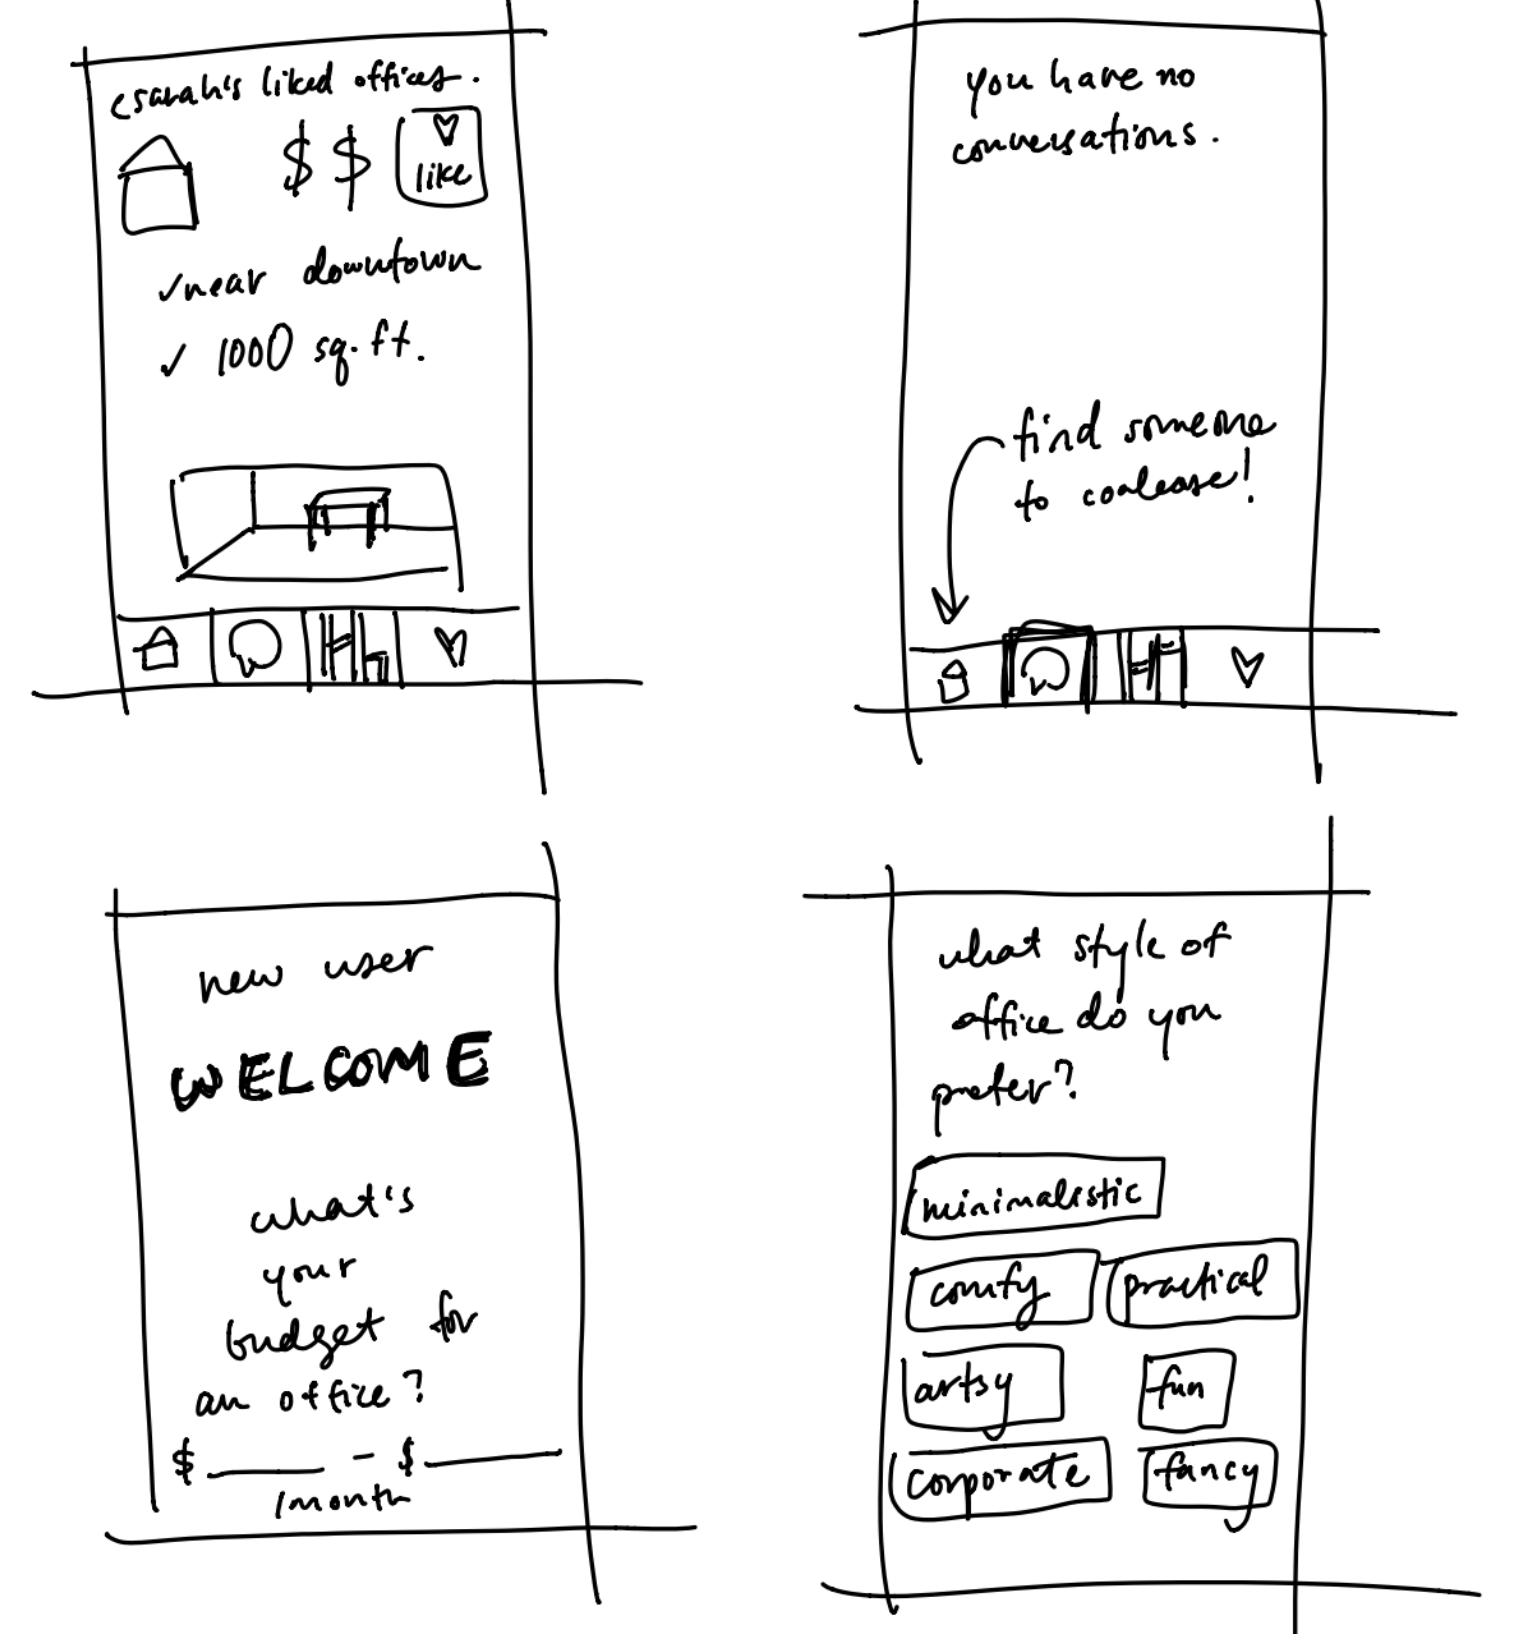 <sarah's liked offices.
$$
like
✓near downtown
✓ 1000 sq.ft.
you have no
conversations.
find someone
to coalease!
new user
WELCOME
what's
your
budget for
an office?
$ ____ - $ ____
/month
what style of
office do you
prefer?
minimalistic
comfy
practical
artsy
fun
corporate
fancy